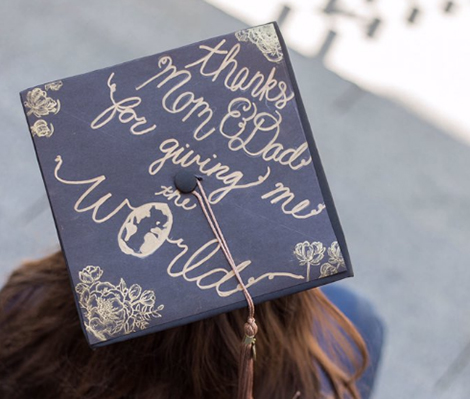 thanks
Mom & Dad
for giving me
the
World